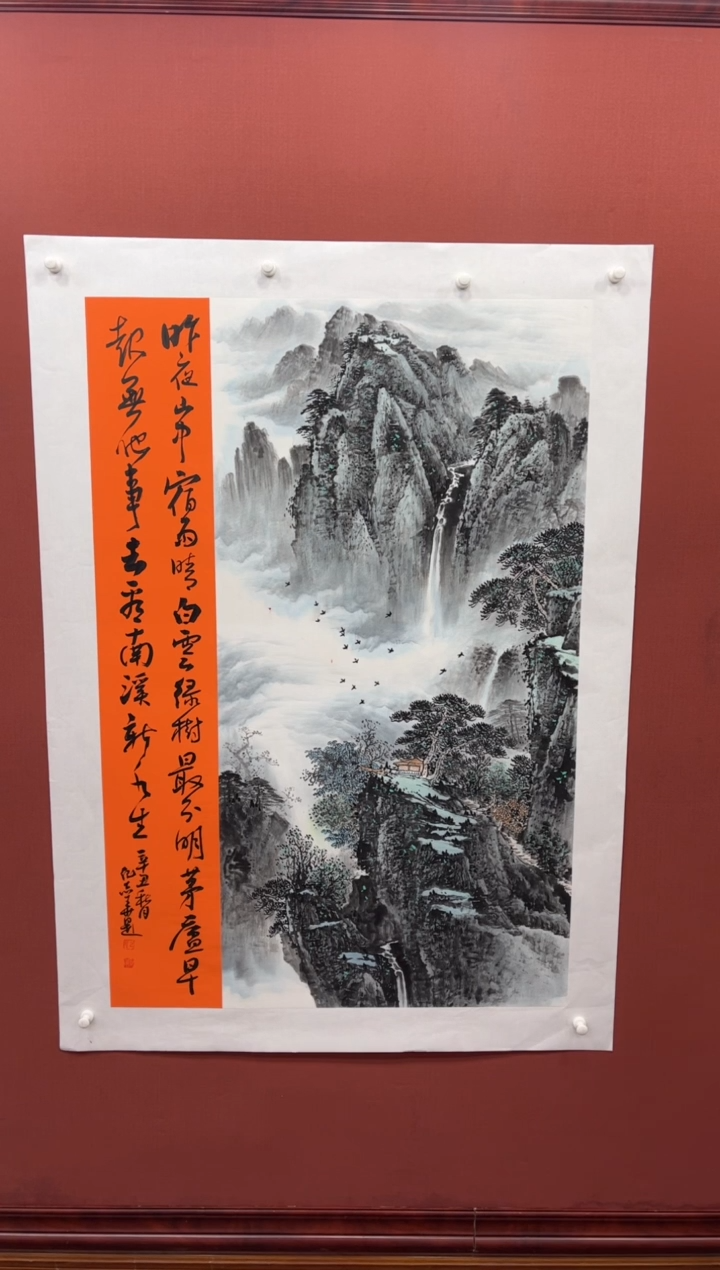 昨夜山中宿雨晴白雲綠樹最分明茅廬早
起無他事去看南溪新水生
辛丑秋月